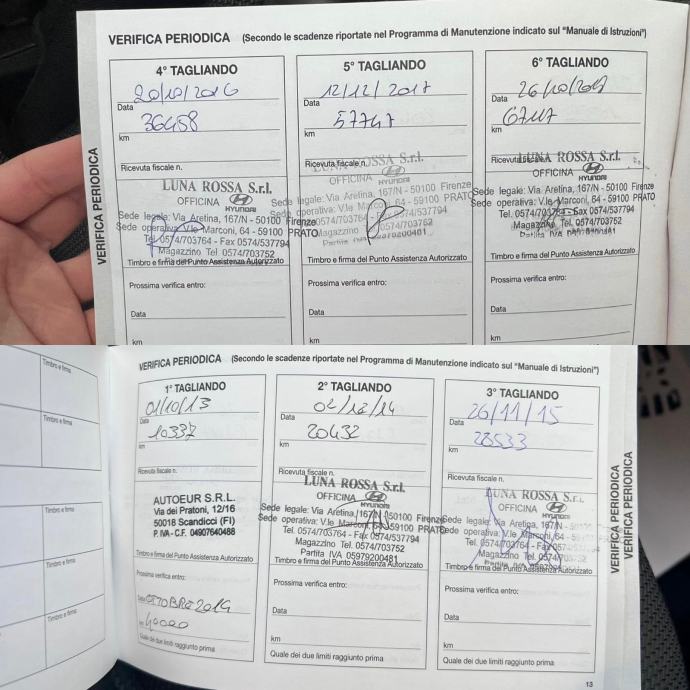 VERIFICA PERIODICA (Secondo le scadenze riportate nel Programma di Manutenzione indicato sul "Manuale di Istruzioni")
VERIFICA PERIODICA
4° TAGLIANDO
20/10/2016
Data
36458
km
Ricevuta fiscale n.
LUNA ROSSA S.r.l.
OFFICINA HYUNDAI
Sede legale: Via Aretina, 167/N - 50100 Firenze
Sede operativa: V.le Marconi, 64 - 59100 PRATO
Tel. 0574/703764 - Fax 0574/537794
Magazzino Tel. 0574/703752
Timbro e firma del Punto Assistenza Autorizzato
Prossima verifica entro:
Data
km
5° TAGLIANDO
12/12/2017
Data
57747
km
Ricevuta fiscale n.
LUNA ROSSA S.r.l.
OFFICINA HYUNDAI
Sede legale: Via Aretina, 167/N - 50100 Firenze
Sede operativa: V.le Marconi, 64 - 59100 PRATO
0574/703764 - Fax 0574/537794
Magazzino 0574/703752
Partita IVA
Timbro e firma del Punto Assistenza Autorizzato
Prossima verifica entro:
Data
km
6° TAGLIANDO
Data
km
Ricevuta
LUNA ROSSA S.r.l.
OFFICINA HYUNDAI
Sede legale: Via Aretina, 167/N - 50100 Firenze
Sede operativa: V.le Marconi, 64 - 59100 PRATO
Tel. 0574/703764 - Fax 0574/537794
Magazzino Tel. 0574/703752
Partita IVA
Timbro e firma del Punto Assistenza Autorizzato
Prossima verifica entro:
Data
km
Timbro e firma
Timbro e firma
Timbro e firma
Timbro e firma
Timbro e firma
VERIFICA PERIODICA (Secondo le scadenze riportate nel Programma di Manutenzione indicato sul "Manuale di Istruzioni")
1° TAGLIANDO
01/10/13
Data
10337
km
Ricevuta fiscale n.
AUTOEUR S.R.L.
Via dei Pratoni, 12/16
50018 Scandicci (FI)
P. IVA - C.F. 04907640488
Timbro e firma del Punto Assistenza Autorizzato
Prossima verifica entro:
Data OTTOBRE 2014
km 40000
Quale dei due limiti raggiunto prima
2° TAGLIANDO
02/12/14
Data
20432
km
Ricevuta fiscale n.
LUNA ROSSA S.r.l.
OFFICINA HYUNDAI
Sede legale: Via Aretina, 167/N - 50100 Firenze
Sede operativa: V.le Marconi, 64 - 59100 PRATO
Tel. 0574/703764 - Fax 0574/537794
Magazzino Tel. 0574/703752
Partita IVA 05979200481
Timbro e firma del Punto Assistenza Autorizzato
Prossima verifica entro:
Data
km
Quale dei due limiti raggiunto prima
3° TAGLIANDO
26/11/15
Data
28533
km
Ricevuta fiscale n.
LUNA ROSSA S.r.l.
OFFICINA HYUNDAI
Sede legale: Via Aretina, 167/N - 50100
Sede operativa: V.le Marconi, 64 -
Tel. 0574/703764 - Fax 0574/
Magazzino Tel. 0574/
Timbro e firma del Punto Assistenza Autorizzato
Prossima verifica entro:
Data
km
Quale dei due limiti raggiunto prima
VERIFICA PERIODICA
VERIFICA PERIODICA
13